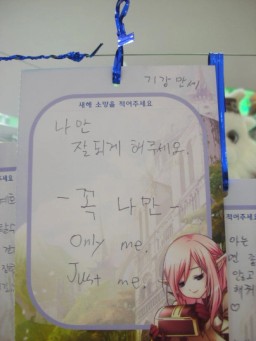 기강만세
새해 소망을 적어주세요
나만
잘되게 해주세요.
- 꼭 나만 -
Only me.
Just me.
적어주세요
아는